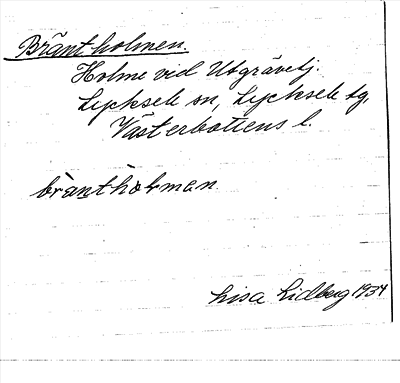 Bräntholmen.
Holme vid Utgrävtj.
Lycksele sn, Lycksele tg,
Västerbottens l.
brantholmen
Lisa Lidberg 1934